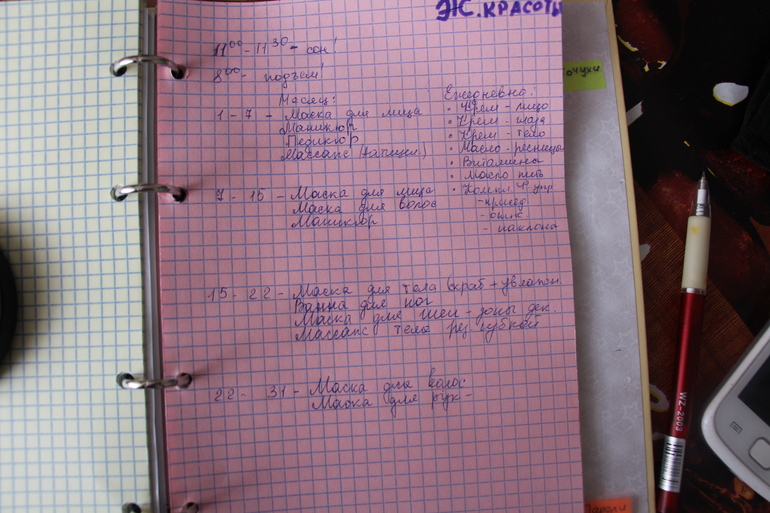 Ж. КРАСОТЫ
11⁰⁰ - 11³⁰ - сон!
8⁰⁰ - подъем!
Месяц:
1 - 7 - Маска для лица
Маникюр
Педикюр
Массаж
7 - 15 - Маска для лица
Маска для волос
Маникюр
15 - 22 - Маска для тела
Ванна для ног
Маска для шеи - зоны дек.
Массаж тела губкой
22 - 31 - Маска для волос
Маска для рук -
Ежедневно:
• Крем - лицо
• Крем - шея
• Крем - тело
• Масло - ресницы
• Витамины
• Масло пить
- присед
- наклоны
очухи
Пароли
WZ-2003